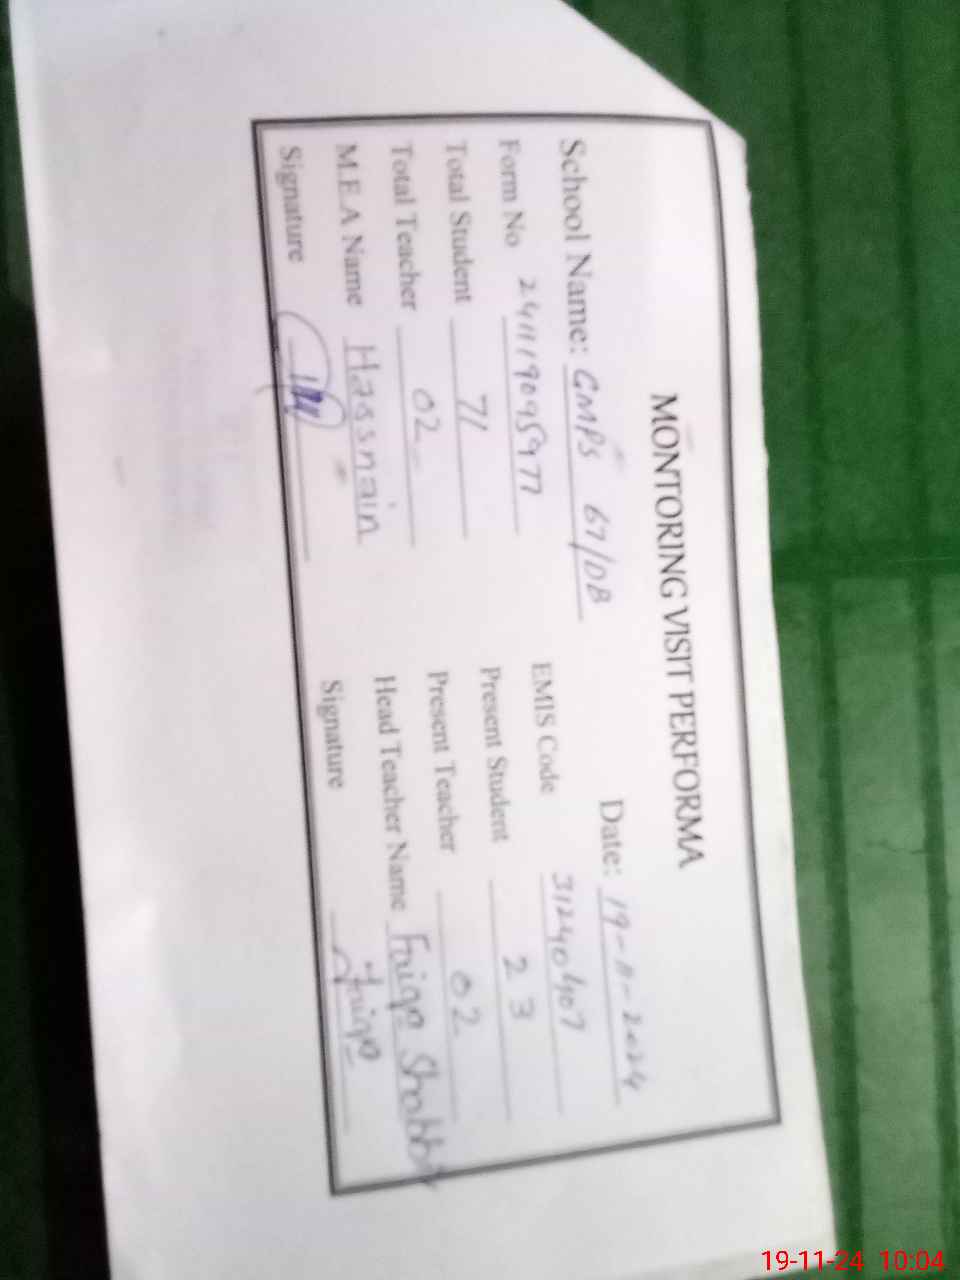 MONTORING VISIT PERFORMA
Date: 19-11-2024
School Name: GMPS 67/DB
Form No 241119095977 EMIS Code 31240407
Total Student 71 Present Student 23
Total Teacher 02 Present Teacher 02
M.E.A Name Hassnain Head Teacher Name Faiqa Shabbir
Signature Signature Faiqa
19-11-24 10:04